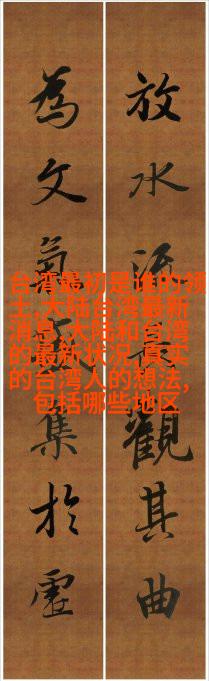 放水流觀其曲
為文氣集於虛
台湾最初是谁的领
土,大陆台湾最新
消息,大陆和台湾
的最新状况,真实
的台湾人的想法,
包括哪些地区